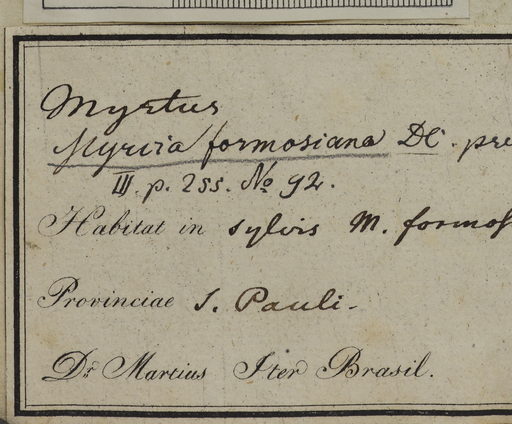 Myrtus
Myrcia formosiana DC. pr
III. p. 255. No 92.
Habitat in sylvis M. formos
Provinciae S. Pauli.
Dr. Martius Iter Brasil.